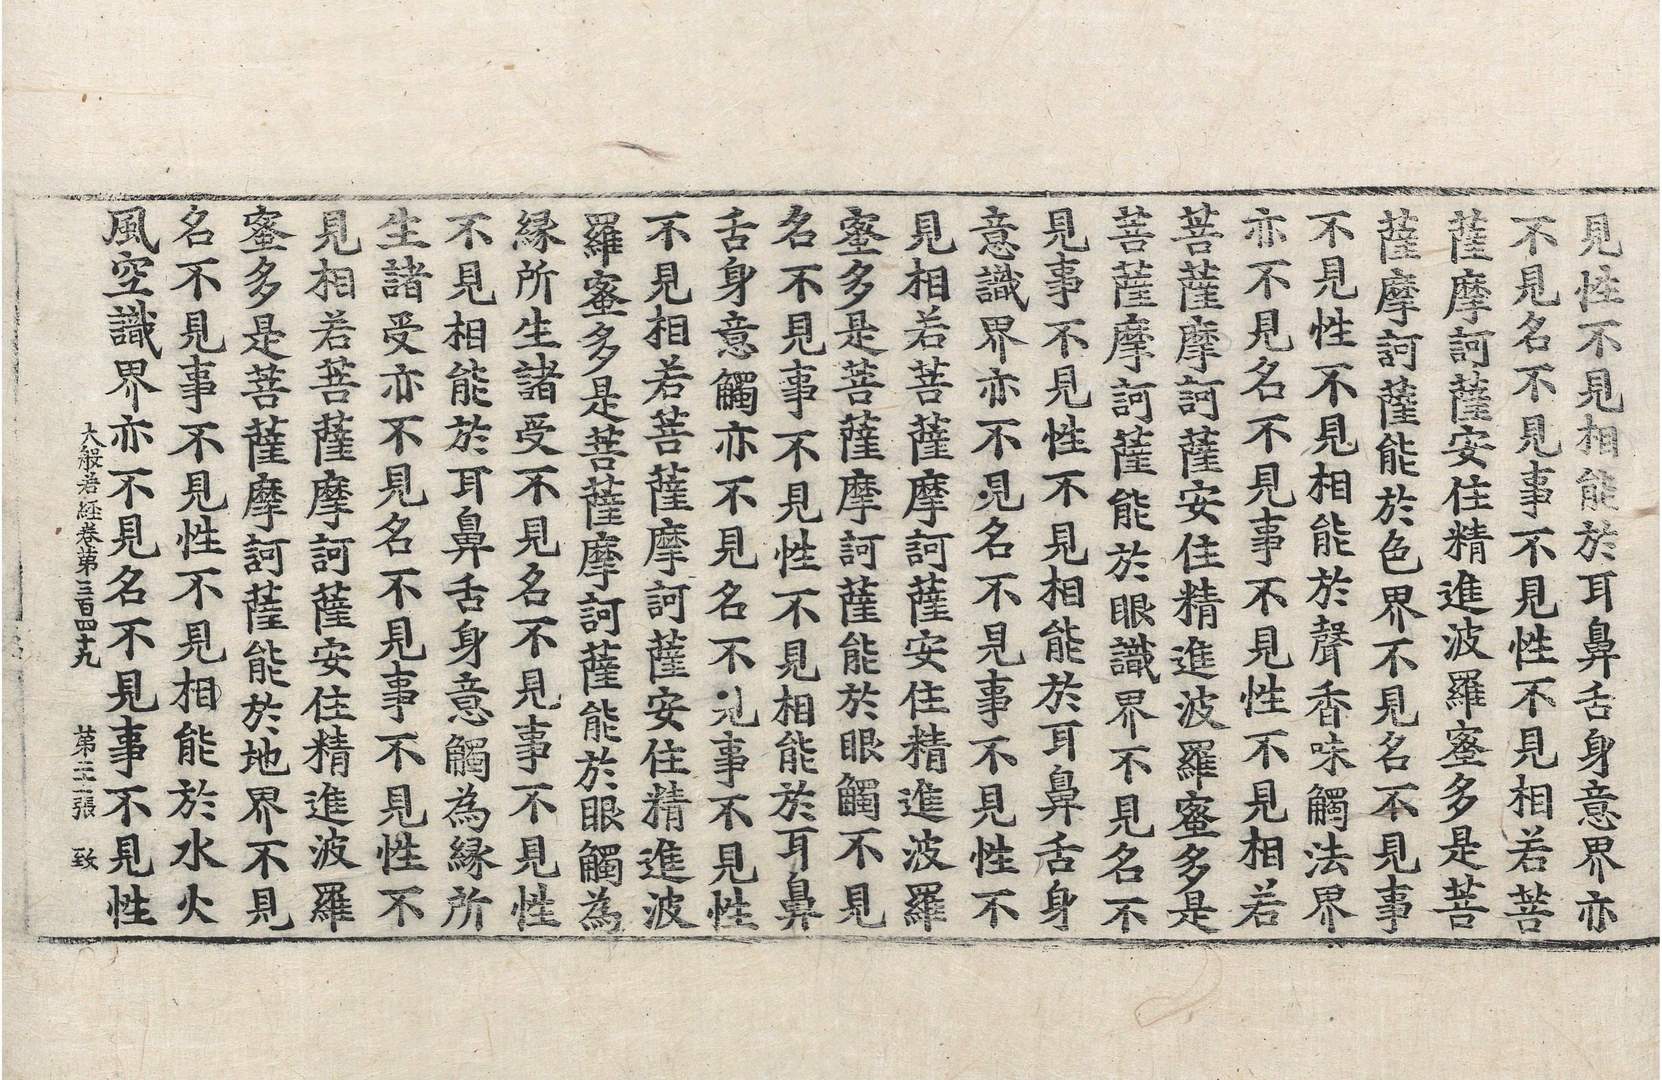 見性不見相能於耳鼻舌身意界亦
不見名不見事不見性不見相若菩
薩摩訶薩安住精進波羅蜜多是菩
薩摩訶薩能於色界不見名不見事
不見性不見相能於聲香味觸法界
亦不見名不見事不見性不見相若
菩薩摩訶薩安住精進波羅蜜多是
菩薩摩訶薩能於眼識界不見名不
見事不見性不見相能於耳鼻舌身
意識界亦不見名不見事不見性不
見相若菩薩摩訶薩安住精進波羅
蜜多是菩薩摩訶薩能於眼觸不見
名不見事不見性不見相能於耳鼻
舌身意觸亦不見名不見事不見性
不見相若菩薩摩訶薩安住精進波
羅蜜多是菩薩摩訶薩能於眼觸為
緣所生諸受不見名不見事不見性
不見相能於耳鼻舌身意觸為緣所
生諸受亦不見名不見事不見性不
見相若菩薩摩訶薩安住精進波羅
蜜多是菩薩摩訶薩能於地界不見
名不見事不見性不見相能於水火
風空識界亦不見名不見事不見性
大般若經卷第三百四十九 第張 致